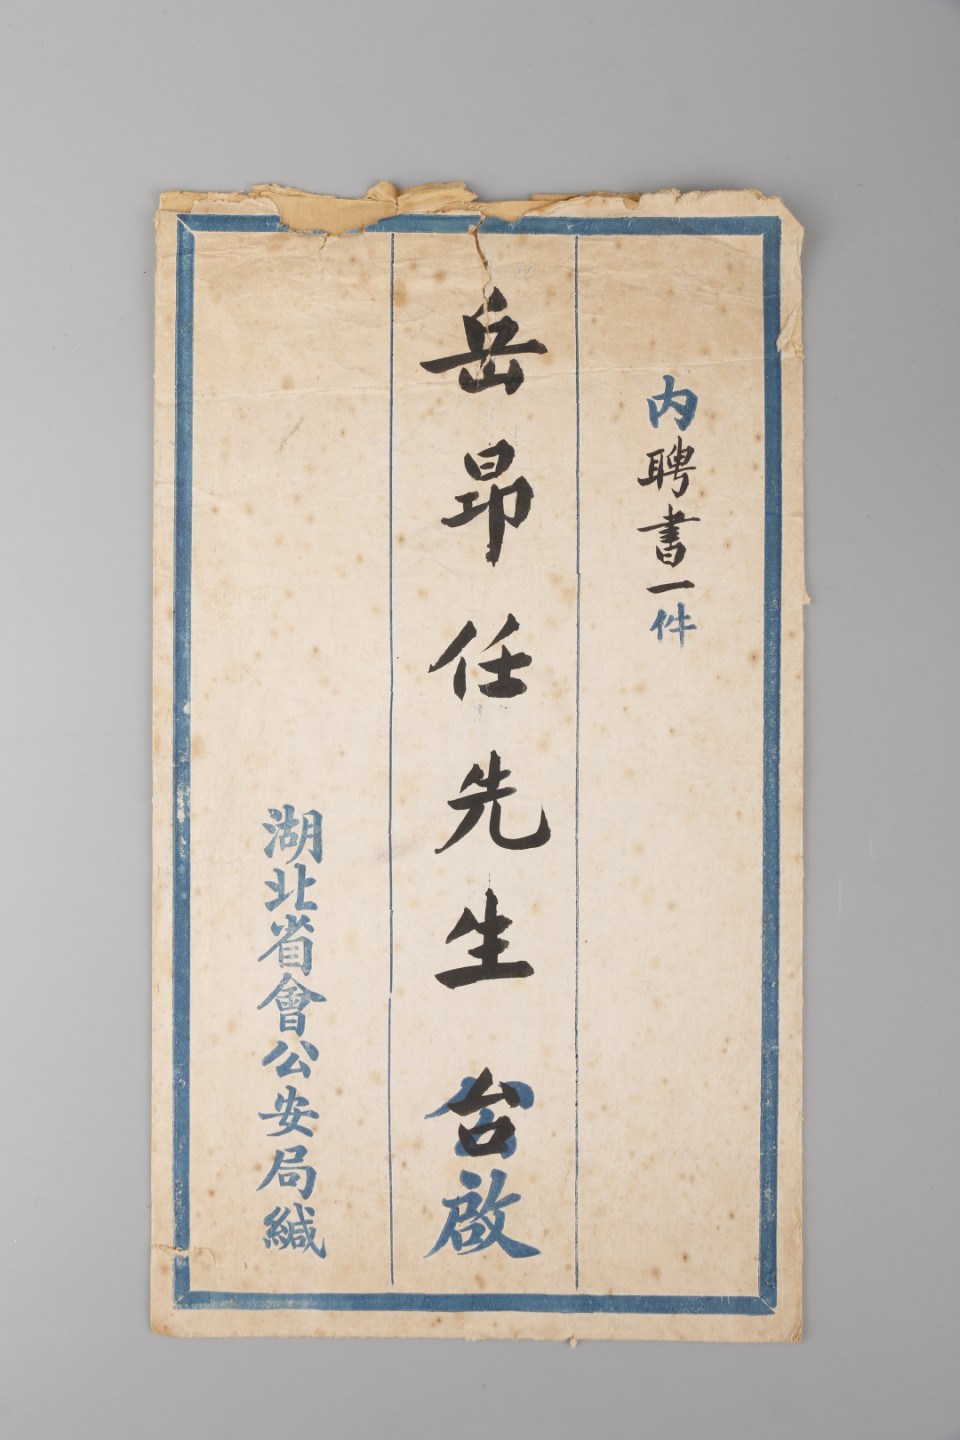 内聘書一件
岳昻任先生台啟
湖北省會公安局緘